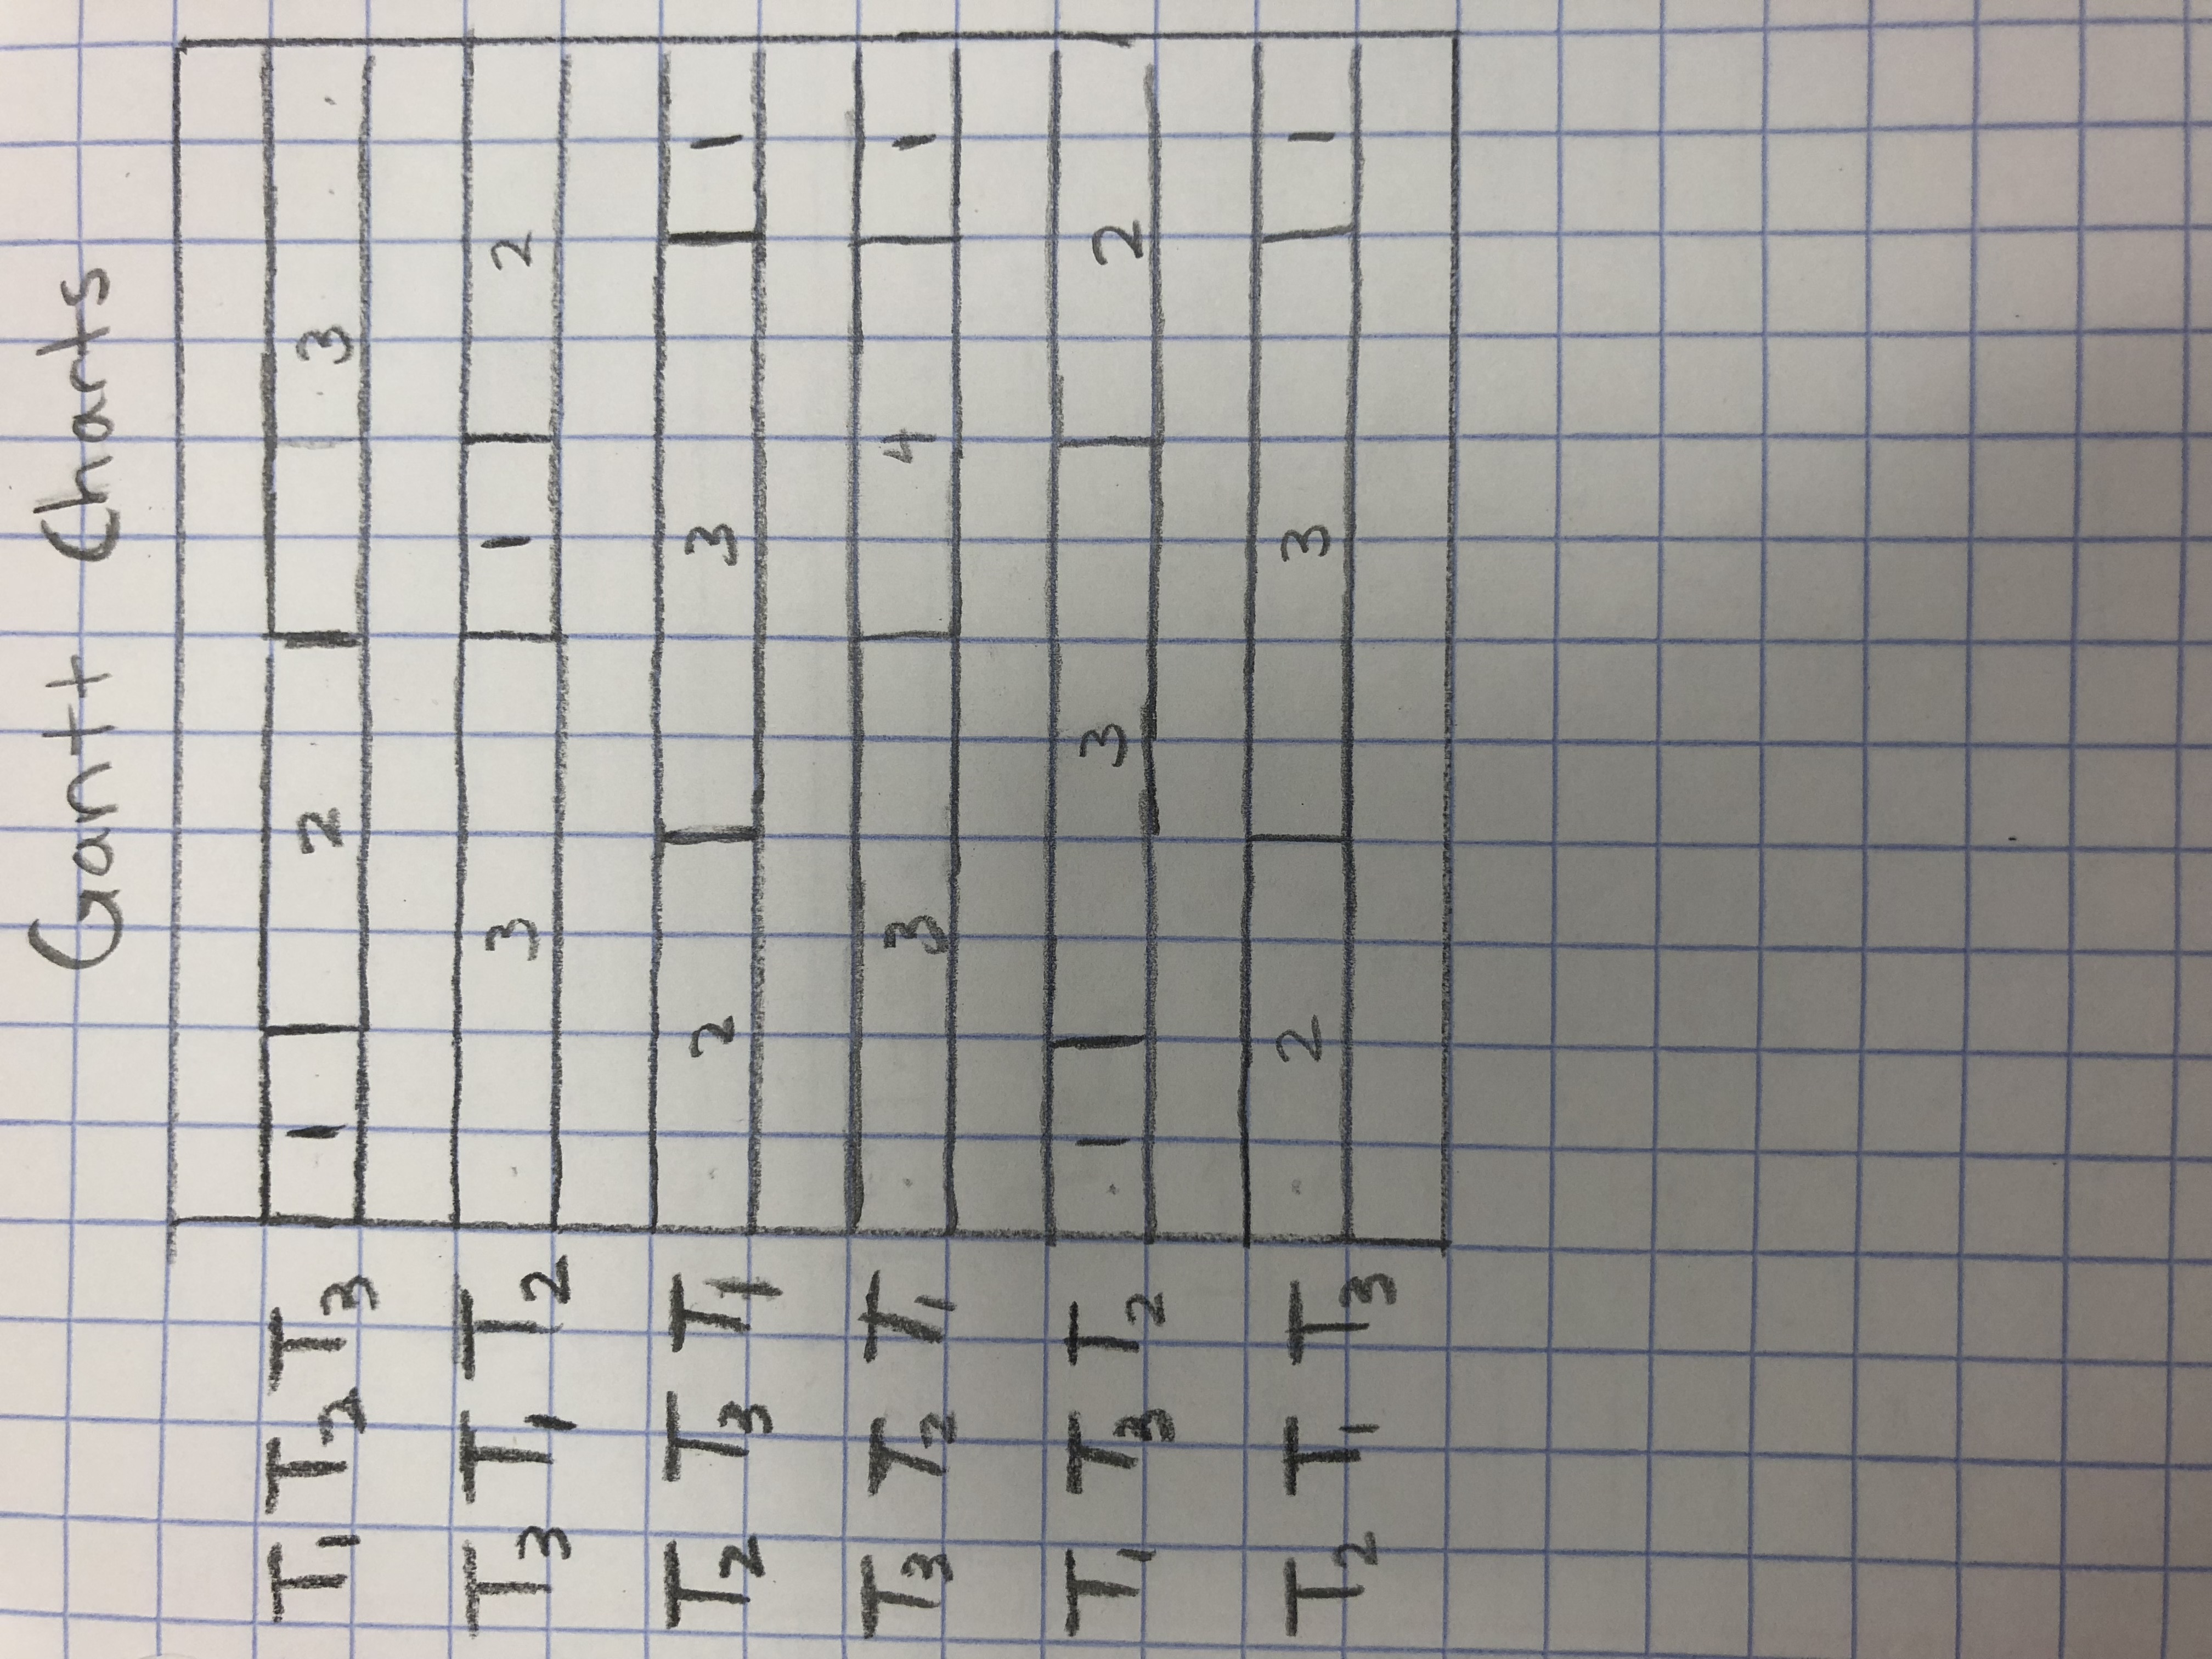 Gantt Charts
T1 T2 T3 1 2 3
T3 T1 T2 3 1 2
T2 T3 T1 2 3 1
T3 T2 T1 3 4 1
T1 T3 T2 1 3 2
T2 T1 T3 2 3 1